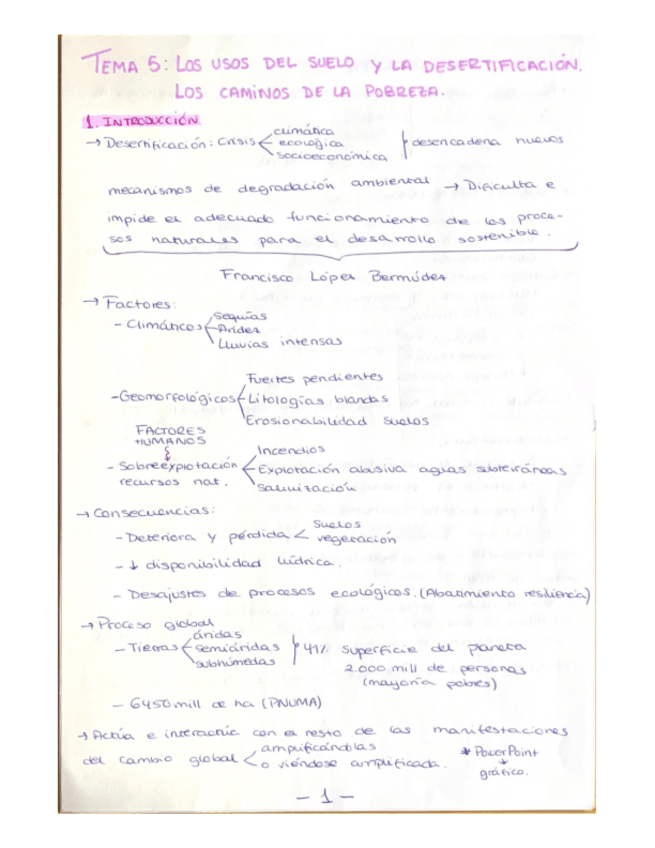 TEMA 5: LOS USOS DEL SUELO Y LA DESERTIFICACIÓN.
LOS CAMINOS DE LA POBREZA.
1. INTRODUCCIÓN
→ Desertificación: Crisis climática
ecológica
socioeconómica
desencadena nuevos
mecanismos de degradación ambiental → Dificulta e
impide el adecuado funcionamiento de los proce-
sos naturales para el desarrollo sostenible.
Francisco López Bermúdez
→ Factores:
- Climáticos
Sequías
Aridez
Lluvias intensas
- Geomorfológicos
Fuertes pendientes
Litologías blandas
Erosionabilidad suelos
FACTORES
HUMANOS
- Sobreexplotación
recursos nat.
Incendios
Explotación abusiva aguas subterráneas
Salinización
→ Consecuencias:
- Deteriora y pérdida
Suelos
vegetación
- ↓ disponibilidad hídrica.
- Desajustes de procesos ecológicos. (Abatimiento resiliencia)
→ Proceso global
- Tierras
áridas
semiáridas
subhúmedas
41% superficie del planeta
2.000 mill de personas
(mayoría pobres)
- 6450 mill de ha (PNUMA)
→ Actúa e interactúa con el resto de las manifestaciones
del cambio global
amplificándolas
o viéndose amplificada.
* PowerPoint
↓
gráfico.
- 1 -